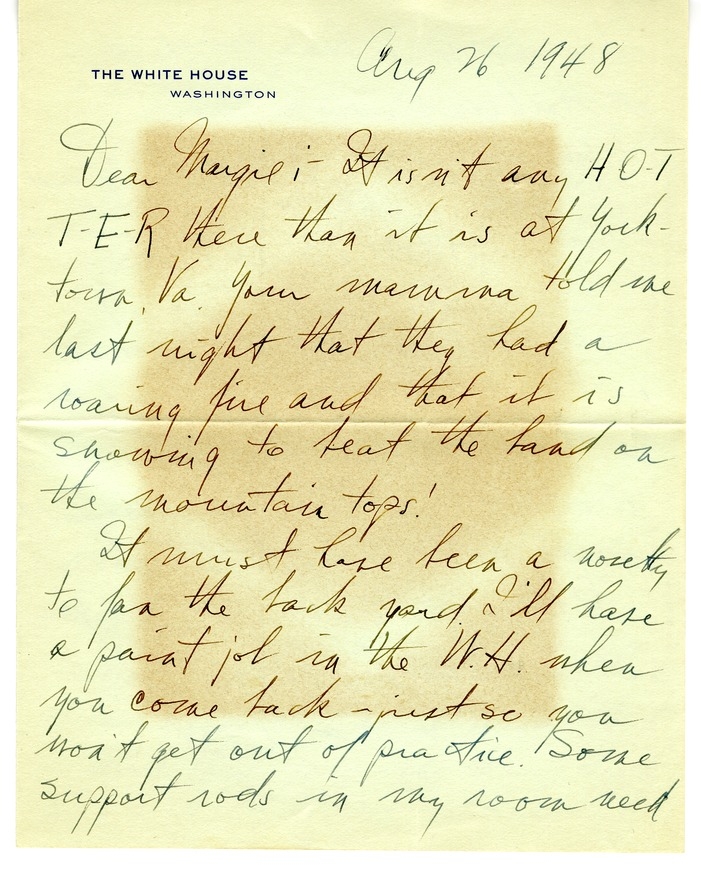 Aug 26 1948
THE WHITE HOUSE
WASHINGTON
Dear Margie:- It isn't any H O-T
T-E-R there than it is at York-
town, Va. Your mamma told me
last night that they had a
roaring fire and that it is
snowing to beat the band on
the mountain tops!
It must have been a novelty
to fan the back yard. I'll have
a paint job in the W.H. when
you come back - just so you
won't get out of practice. Some
support rods in my room need